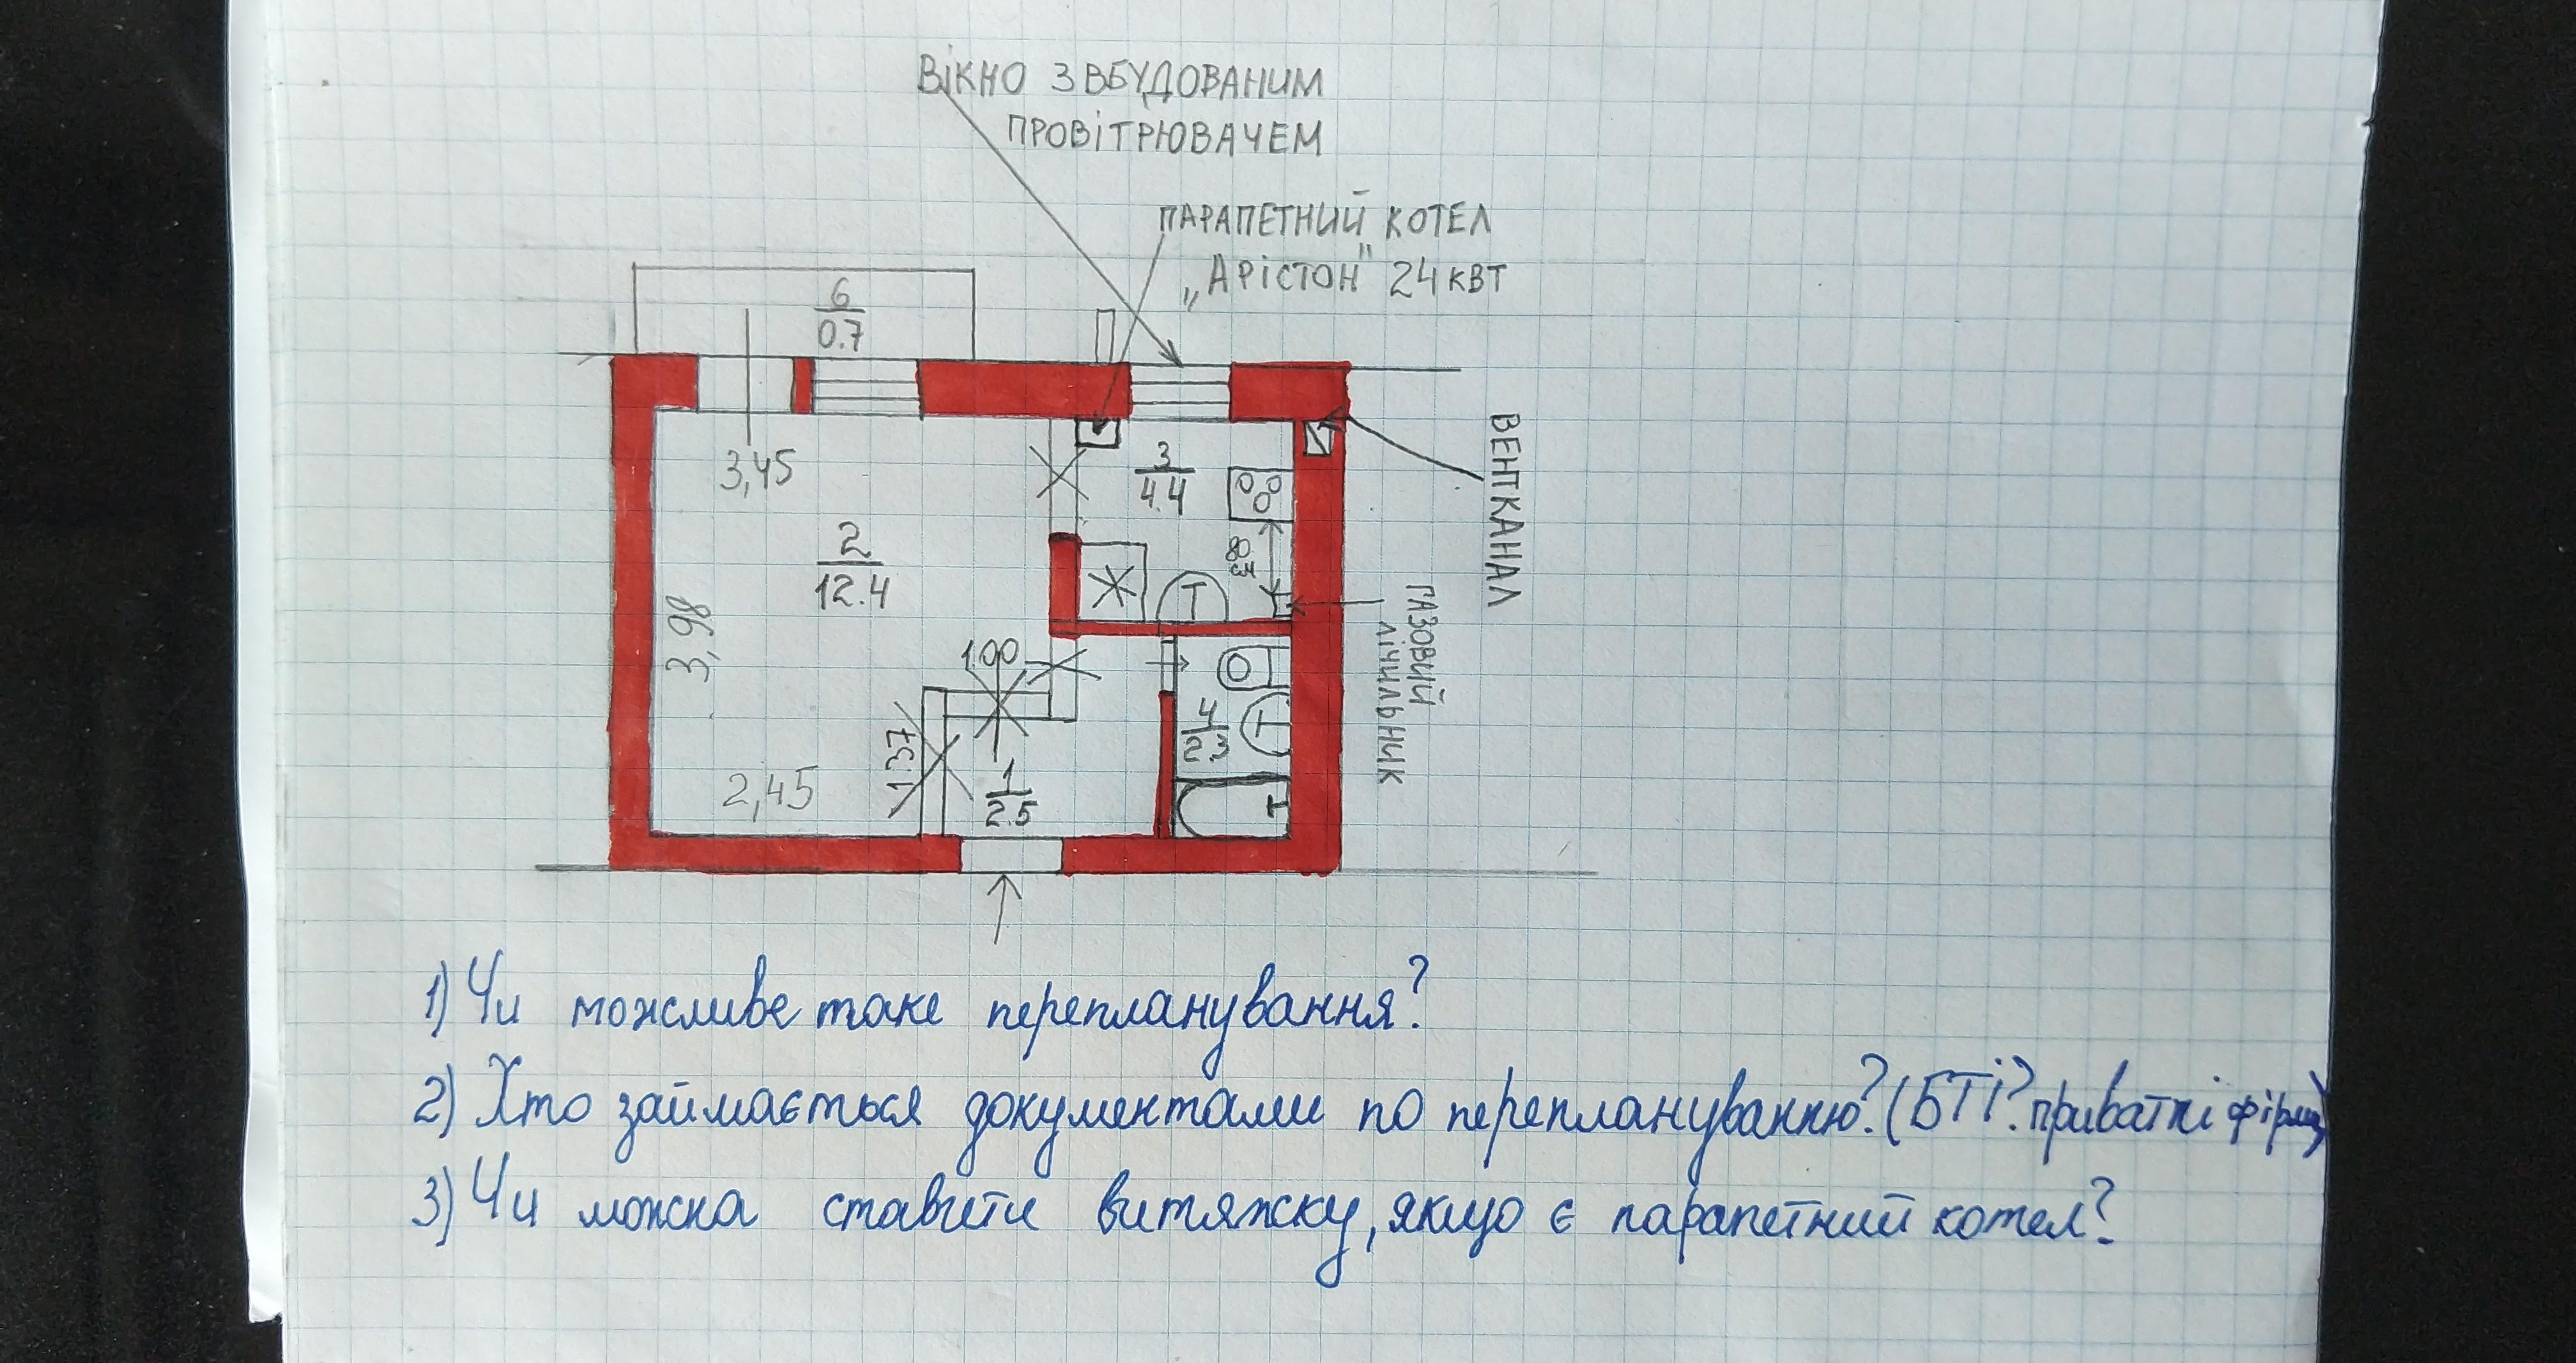 ВІКНО З ВБУДОВАНИМ
ПРОВІТРЮВАЧЕМ
ПАРАПЕТНИЙ КОТЕЛ
„АРІСТОН" 24 КВТ
6
0.7
ВЕНТКАНАЛ
3,45
3
4.4
2
12.4
80 см
3,98
ГАЗОВИЙ
ЛІЧИЛЬНИК
Т
1.00
4
2.3
Т
1.37
1
2.5
2,45
Т
1) Чи можливе таке перепланування?
2) Хто займається документами по переплануванню? (БТІ? приватні фірми)
3) Чи можна ставити витяжку, якщо є парапетний котел?